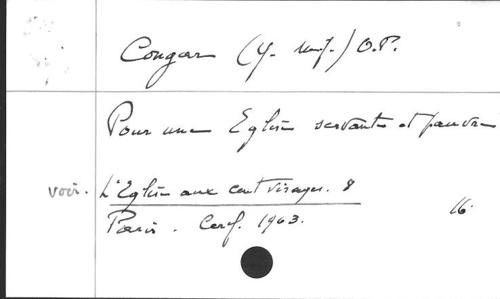 Congar (Y. M.-J.) O.P.
Pour une Eglise servante et pauvre
voir. L'Eglise aux cent visages. 8
Paris. Cerf. 1963.
16